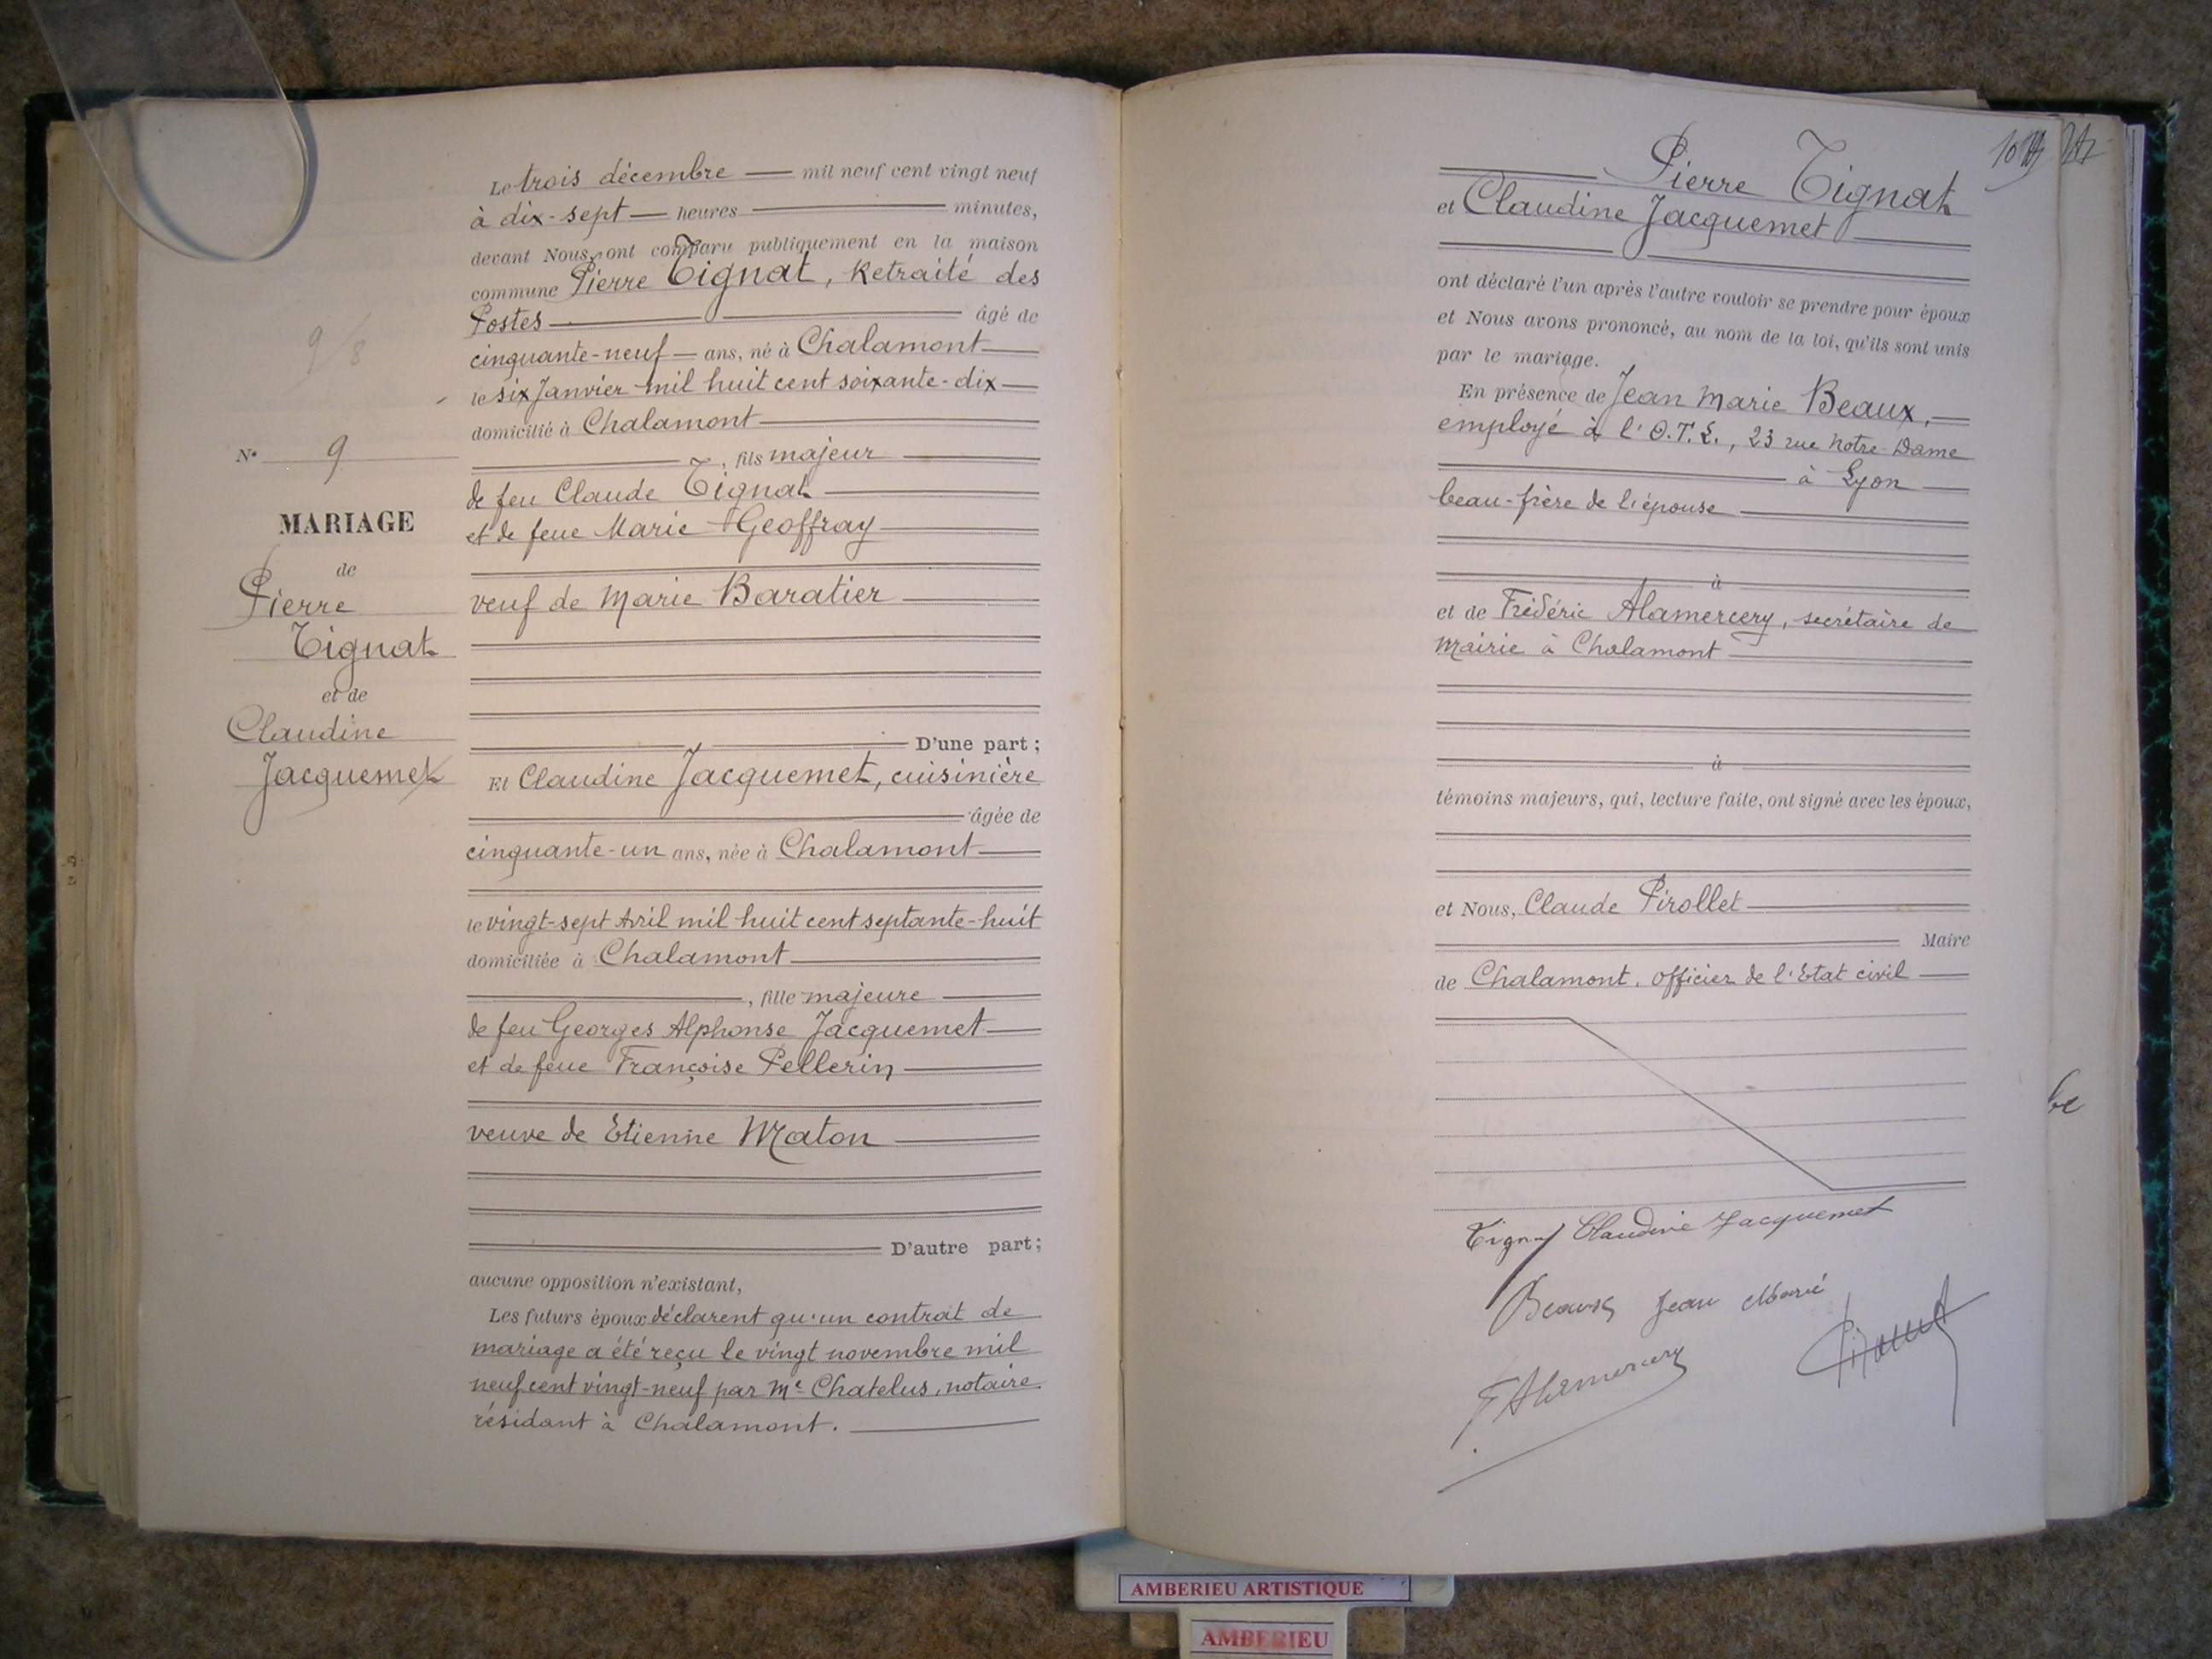 9/8
N° 9
MARIAGE
de
Pierre
Tignat
et de
Claudine
Jacquemet
Le trois décembre mil neuf cent vingt neuf
à dix-sept heures minutes,
devant Nous, ont comparu publiquement en la maison
commune Pierre Tignat, Retraité des
Postes âgé de
cinquante-neuf ans, né à Chalamont
le six Janvier mil huit cent soixante-dix
domicilié à Chalamont
, fils majeur
de feu Claude Tignat
et de feue Marie Geoffray
veuf de Marie Baratier
D'une part ;
Et Claudine Jacquemet, cuisinière
âgée de
cinquante-un ans, née à Chalamont
le vingt-sept Avril mil huit cent septante-huit
domiciliée à Chalamont
, fille majeure
de feu Georges Alphonse Jacquemet
et de feue Françoise Pellerin
veuve de Etienne Maton
D'autre part ;
aucune opposition n'existant,
Les futurs époux déclarent qu'un contrat de
mariage a été reçu le vingt novembre mil
neuf cent vingt-neuf par Me Chatelus, notaire
résidant à Chalamont.
Pierre Tignat
et Claudine Jacquemet
ont déclaré l'un après l'autre vouloir se prendre pour époux
et Nous avons prononcé, au nom de la loi, qu'ils sont unis
par le mariage.
En présence de Jean Marie Beaux,
employé à l'O.T.L., 23 rue Notre-Dame
à Lyon
beau-frère de l'épouse
à
et de Frédéric Alamercery, secrétaire de
Mairie à Chalamont
à
témoins majeurs, qui, lecture faite, ont signé avec les époux,
et Nous, Claude Pirollet
Maire
de Chalamont, officier de l'Etat civil
Tignat Claudine Jacquemet
Beaux Jean Marie
F Alamercery
be
AMBERIEU ARTISTIQUE
AMBERIEU